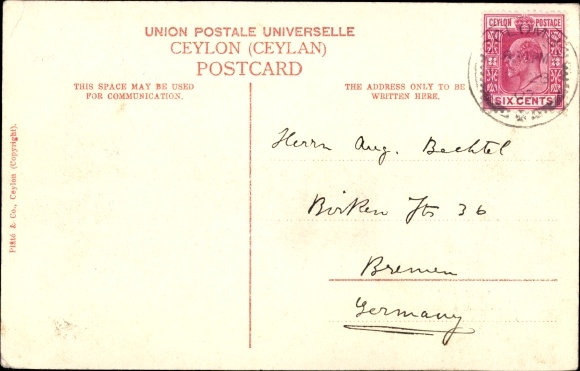 UNION POSTALE UNIVERSELLE
CEYLON (CEYLAN)
POSTCARD
THIS SPACE MAY BE USED
FOR COMMUNICATION.
THE ADDRESS ONLY TO BE
WRITTEN HERE.
CEYLON POSTAGE
SIX CENTS
Herrn Aug. Bechtel
Birken Str 36
Bremen
Germany
Plâté & Co., Ceylon (Copyright).